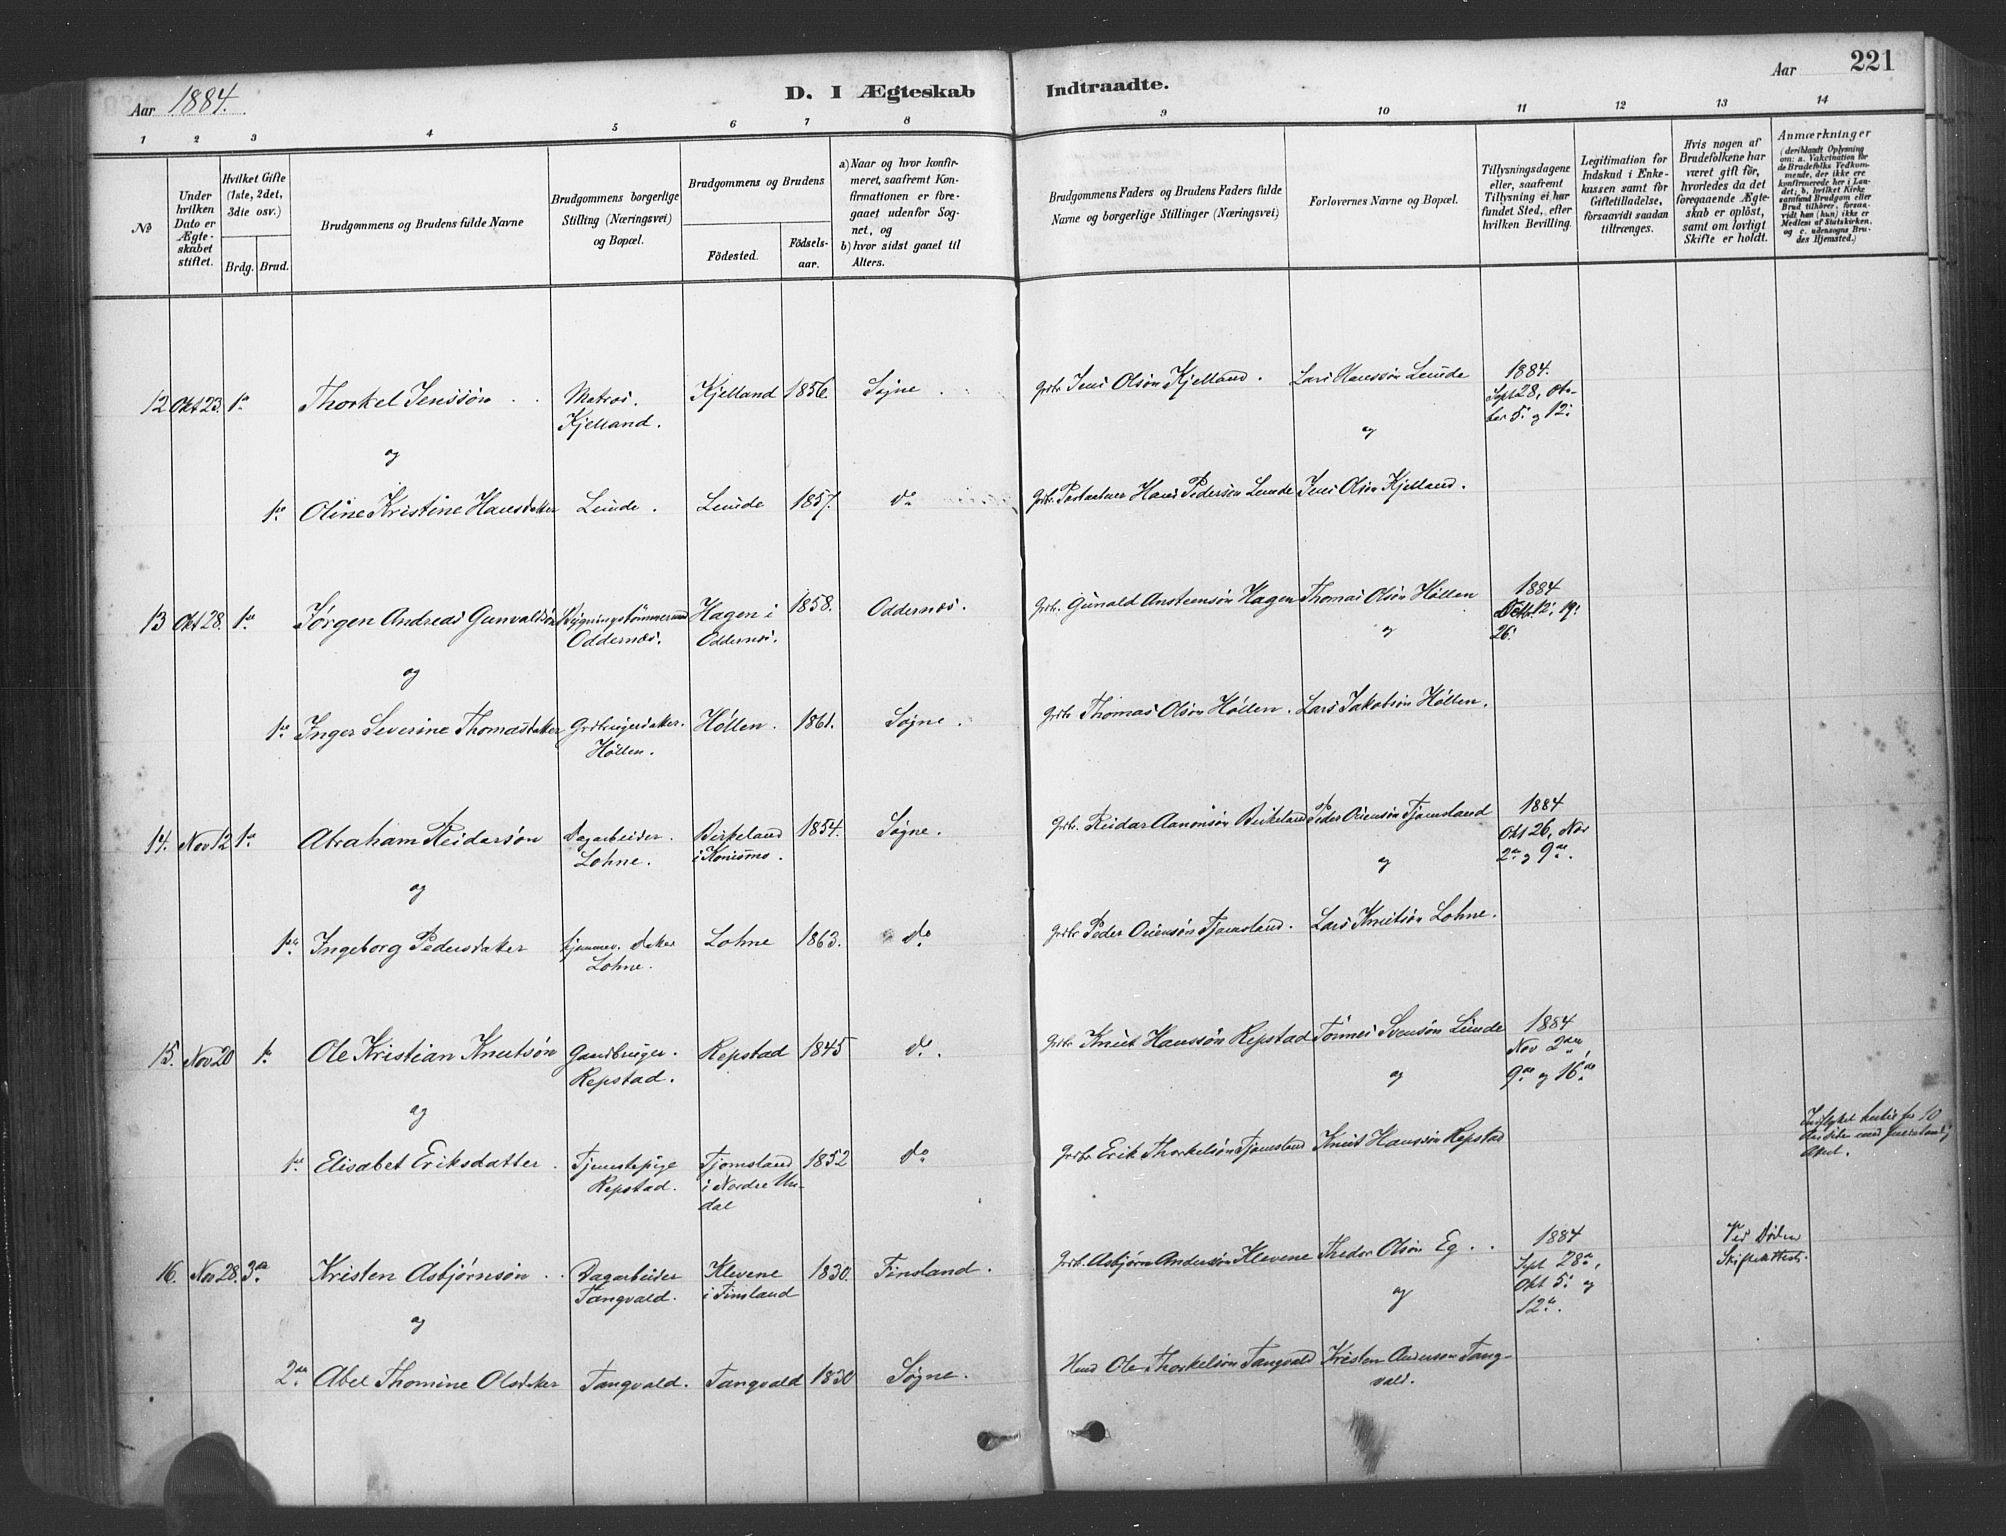 Aar 1884.
D. I Ægteskab Indtraadte.
Aar
221
1 2 3 4 5 6 7 8 9 10 11 12 13 14
No
Under hvilken Dato er Ægteskabet stiftet.
Hvilket Gifte (1ste, 2det, 3die osv.)
Brdg. Brud.
Brudgommens og Brudens fulde Navne
Brudgommens borgerlige Stilling (Næringsvei) og Bopæl.
Brudgommens og Brudens
Födested.
Födselsaar.
a) Naar og hvor konfirmeret, saafremt Konfirmationen er foregaaet udenfor Sognet, og
b) hvor sidst gaaet til Alters.
Brudgommens Faders og Brudens Faders fulde Navne og borgerlige Stillinger (Næringsvei)
Forlovernes Navne og Bopæl.
Tillysningsdagene eller, saafremt Tillysning ei har fundet Sted, efter hvilken Bevilling.
Legitimation for Indskud i Enkekassen samt for Giftetilladelse, forsaavidt saadan tiltrænges.
Hvis nogen af Brudefolkene har været gift för, hvorledes da det foregaaende Ægteskab er oplöst, samt om lovligt Skifte er holdt.
Anmærkninger (deriblandt Oplysning om: a. Vakcination for de Brudefolks Vedkommende, der ikke ere konfirmerede her i Landet; b. hvilket Kirkesamfund Brudgom eller Brud tilhörer, forsaavidt han (hun) ikke er Medlem af Statskirken, og c. udensogns Brudes Hjemsted.)
12 Okt 23. 1ste Thorkel Jenssön Matros. Kjelland. Kjelland 1856. Søgne Grbr. Jens Olsön Kjelland. Lars Hanssön Lunde 1884. Sept 28, Oktober 5. og 12.
og og
1ste Oline Kristine Hansdatter Lunde. Lunde 1857. do Hans Pedersen Lunde Jens Olsön Kjelland.
13 Okt 28. 1ste Jørgen Andreas Gunvaldsön Bygningstömmermand Oddernæs. Hagen i Oddernæs. 1858. Oddernæs. Grbr. Gunald Ansteensön Hagen Thomas Olsön Höllen 1884 12. 19. 26.
og og
1ste Inger Severine Thomasdatter Höllen. Höllen. 1861. Søgne. Grbr Thomas Olsön Höllen. Lars Jakobsön Höllen.
14. Nov 12 1ste Abraham Reidarsön Dagarbeider. Lohne. Birkeland i Konismo. 1854. Søgne. Grbr. Reidar Aanonsön Birkeland Peder Tjomsland 1884 Okt 26, Nov 2den og 9de.
og og
1ste Ingeborg Pedersdatter Lohne. Lohne 1863. do Grbr Peder Tjomsland. Lars Knutsön Lohne.
15. Nov 20 1ste Ole Kristian Knutsön Gaardbruger. Repstad. Repstad 1845 do. Grbr Knut Hanssön Repstad Tönnes Svensön Lunde 1884 Nov 2den, 9de og 16de
og og
1ste Elisabet Eriksdatter. Tjenestepige Repstad. Tjomsland i Nordre Undal 1852 do Grbr Erik Thorkelsön Tjomsland Knut Hanssön Repstad
16. Nov 28. 3die Kristen Asbjørnsøn Dagarbeider Tangvald. Klevene i Finsland 1830. Finsland. Grbr. Asbjørn Andersøn Klevene Thedor Olsön Eg. 1884 Sept 28de, Okt 5. og 12te. Ved Döden Skifteattest.
og og
2den Abel Thomine Olsdatter Tangvald. Tangvald 1830 Søgne. Husm Ole Thorkelsön Tangvald Kristen Andersen Tangvald.